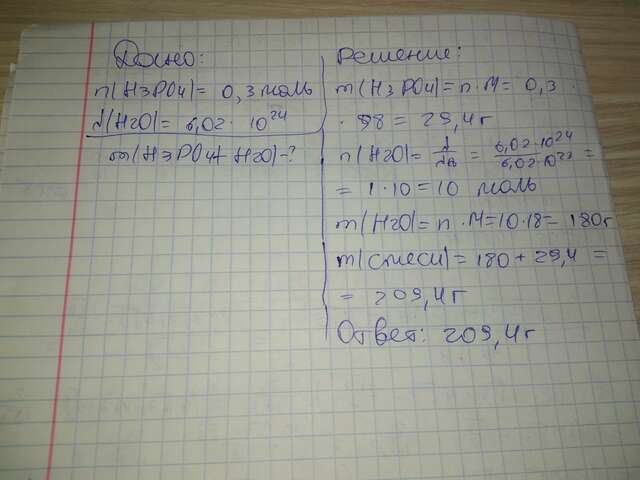 Дано:
n(H3PO4)= 0,3 моль
N(H2O)= 6,02 · 10²⁴
m(H3PO4+ H2O)-?
Решение:
m(H3PO4)= n·M= 0,3 ·
· 98 = 29,4 г
n(H2O)= N/NA = 6,02·10²⁴/6,02·10²³ =
= 1·10 = 10 моль
m(H2O)= n·M=10·18= 180г
m(смеси)= 180 + 29,4 =
= 209,4 г
Ответ: 209,4 г